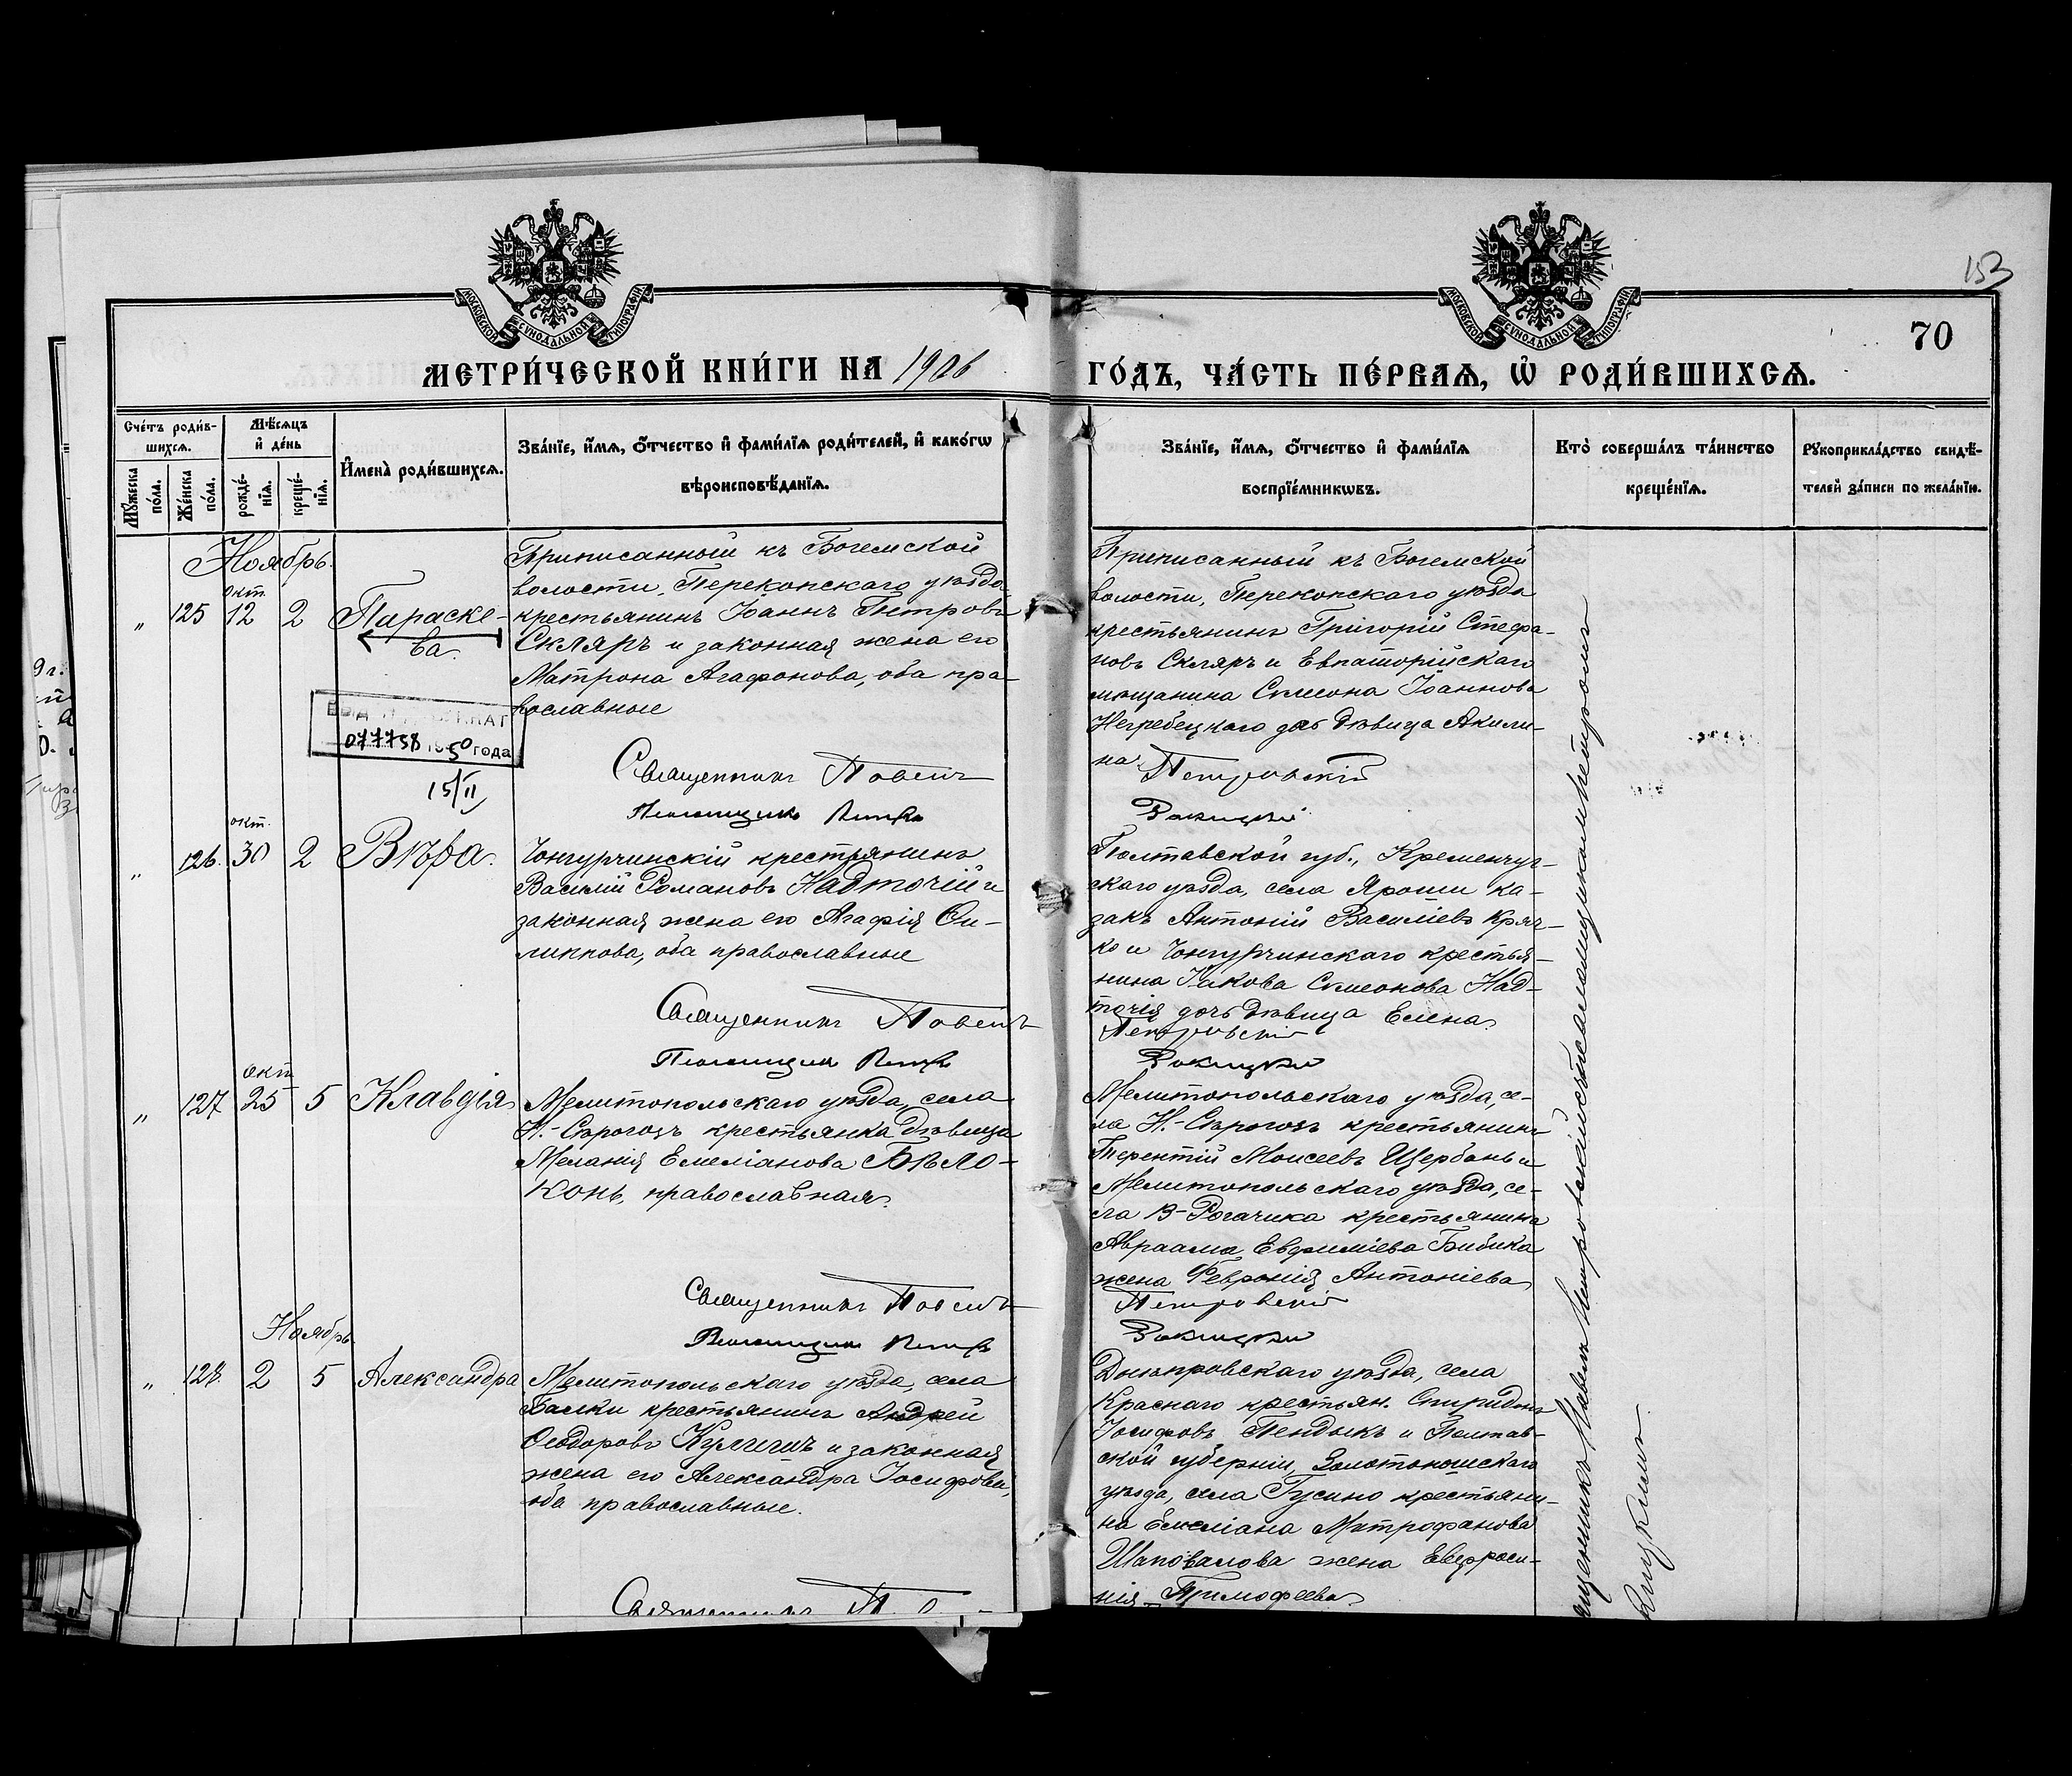 153
70
МОСКОВСКОЙ СѴНОДАЛЬНОЙ ТИПОГРАФІИ
МОСКОВСКОЙ СѴНОДАЛЬНОЙ ТИПОГРАФІИ
МЕТРИ́ЧЕСКОЙ КНИ́ГИ НА 1906
ГО́ДЪ, ЧА́СТЬ ПЕ́РВАѦ, Ѡ҆ РОДИ́ВШИХСѦ.
Сче́тъ роди́в-
шихсѧ.
Мꙋ́жеска
по́ла.
Же́нска
по́ла.
Мѣ́сѧцъ
и҆ де́нь
рожде́-
нїѧ.
креще́-
нїѧ.
И҆мена̀ роди́вшихсѧ.
Зва́нїе, и҆́мѧ, ѻ҆́тчество и҆ фами́лїѧ роди́телей, и҆ како́гѡ
вѣроисповѣ́данїѧ.
Зва́нїе, и҆́мѧ, ѻ҆́тчество и҆ фами́лїѧ
воспрїе́мникѡвъ.
Кто̀ соверша́лъ та́инство
креще́нїѧ.
Рꙋкоприкла́дство свидѣ́-
телей за́писи по жела́нїю.
Ноябрь.
окт.
" 125 12 2 Параске-
ва.
Приписанный къ Богемской
волости, Перекопскаго уѣзда
крестьянинъ Іоаннъ Петровъ
Скляръ и законная жена его
Матрона Агафонова, оба пра-
вославные
077758 1950 года
15/II
Священникъ Павелъ
Псаломщикъ Петръ
Приписанный къ Богемской
волости, Перекопскаго уѣзда
крестьянинъ Григорій Стефа-
новъ Скляръ и Евпаторійскаго
мѣщанина Симеона Іоаннова
Негребецкаго дочь дѣвица Акили-
на
Петровскій
окт.
" 126. 30 2 Вѣра.
Чонгурчинскій крестьянинъ
Василій Романовъ Надточій и
законная жена его Агафія Фи-
липпова, оба православные
Священникъ Павелъ
Псаломщикъ Петръ
Полтавской губ., Кременчуг-
скаго уѣзда, села Яроши ка-
закъ Антоній Василіевъ Кряч-
ко и Чонгурчинскаго крестья-
нина Іакова Симеонова Над-
точія дочь дѣвица Елена.
Петровскій
окт
" 127 25 5 Клавдія
Мелитопольскаго уѣзда, села
Н.-Сѣрогозъ крестьянка дѣвица
Меланія Емеліанова Бѣло-
конь, православная.
Священникъ Павелъ
Псаломщикъ Петръ
Мелитопольскаго уѣзда, се-
ла Н.-Сѣрогозъ крестьянинъ
Терентій Моисеевъ Щербань и
Мелитопольскаго уѣзда, се-
ла В-Рогачика крестьянина
Авраама Евфиміева Бибика
жена Февронія Антоніева
Петровскій
Ноябрь.
" 128. 2 5 Александра
Мелитопольскаго уѣзда, села
Балки крестьянинъ Андрей
Ѳеодоровъ Куличъ и законная
жена его Александра Іосифова,
оба православные.
Священникъ
Днѣпровскаго уѣзда, села
Краснаго крестьян. Спиридонъ
Іосифовъ Пендыкъ и Полтав-
ской губерніи, Золотоношскаго
уѣзда, села Гусино крестьяни-
на Емеліана Митрофанова
Шаповалова жена Евфроси-
нія Тимофеева
Павелъ Петровскій съ псаломщикомъ Петромъ